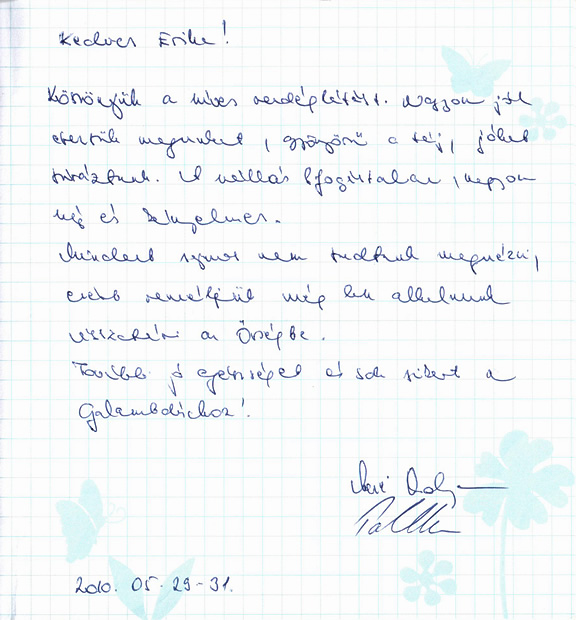 Kedves Erika!
Köszönjük a szíves vendéglátást. Nagyon jól
éreztük magunkat, gyönyörű a táj, jókat
túráztunk. A szállás kifogástalan, nagyon
szép és kényelmes.
Mindent sajnos nem tudtunk megnézni,
ezért reméljük még lesz alkalmunk
visszatérni az Őrségbe.
További jó egészséget és sok sikert a
Galambdúchoz!
2010. 05. 29-31.